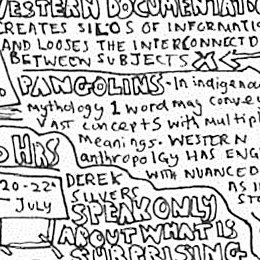 WESTERN DOCUMENTATION
CREATES SILOS OF INFORMATIO
AND LOOSES THE INTERCONNECTED
BETWEEN SUBJECTS X
PANGOLINS - In indigenou
mythology 1 word may convey
VAST concepts with multipl
meanings. WESTERN
HRS
anthropolgy HAS ENG
WITH NUANCED
20-22ⁿ
JULY
DEREK
SILVERS
AS I
STO
SPEAK ONLY
ABOUT WHAT IS
SURPRISING